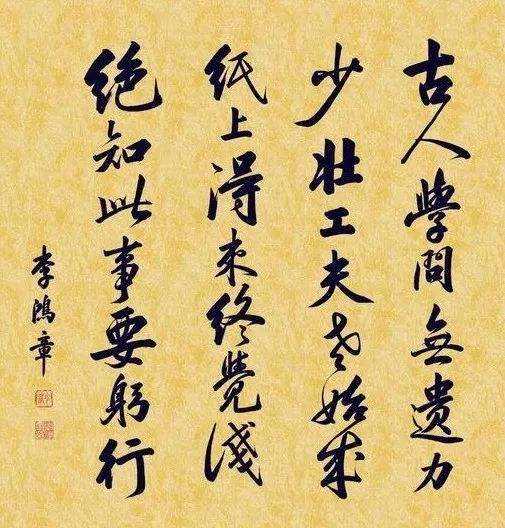 古人學問無遺力
少壯工夫老始成
紙上得来終覺淺
絕知此事要躬行
李鴻章